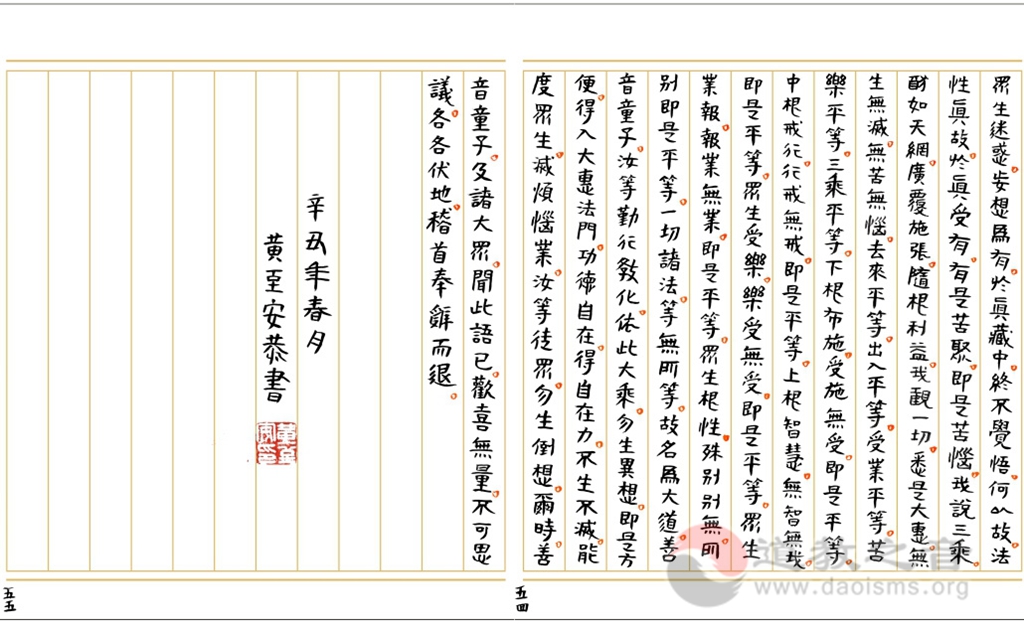 眾生迷惑。妄想為有。於真藏中。終不覺悟。何以故。法
性真故。於真受有。有是苦聚。即是苦惱。我說三乘。
酧如天網。廣覆施張。隨根利益。我觀一切。悉是大惠。無
生無滅。無苦無惱。去來平等。出入平等。受業平等。苦
樂平等。三乘平等。下根布施。受施無受。即是平等。
中根戒行。行戒無戒。即是平等。上根智慧。無智無我。
即是平等。眾生受樂。樂受無受。即是平等。眾生
業報。報業無業。即是平等。眾生根性殊別。別無所
別。即是平等。一切諸法。等無所等。故名為大道。善
音童子。汝等勤行教化。依此大乘。勿生異想。即是方
便。得入大惠法門。功德自在。得自在力。不生不滅。能
度眾生。滅煩惱業。汝等徒眾。勿生倒想。爾時善
音童子。及諸大眾。聞此語已。歡喜無量。不可思
議。各各伏地。稽首奉辭而退。
辛丑年春月
黃至安恭書
五四
五五
道教之音
www.daoisms.org